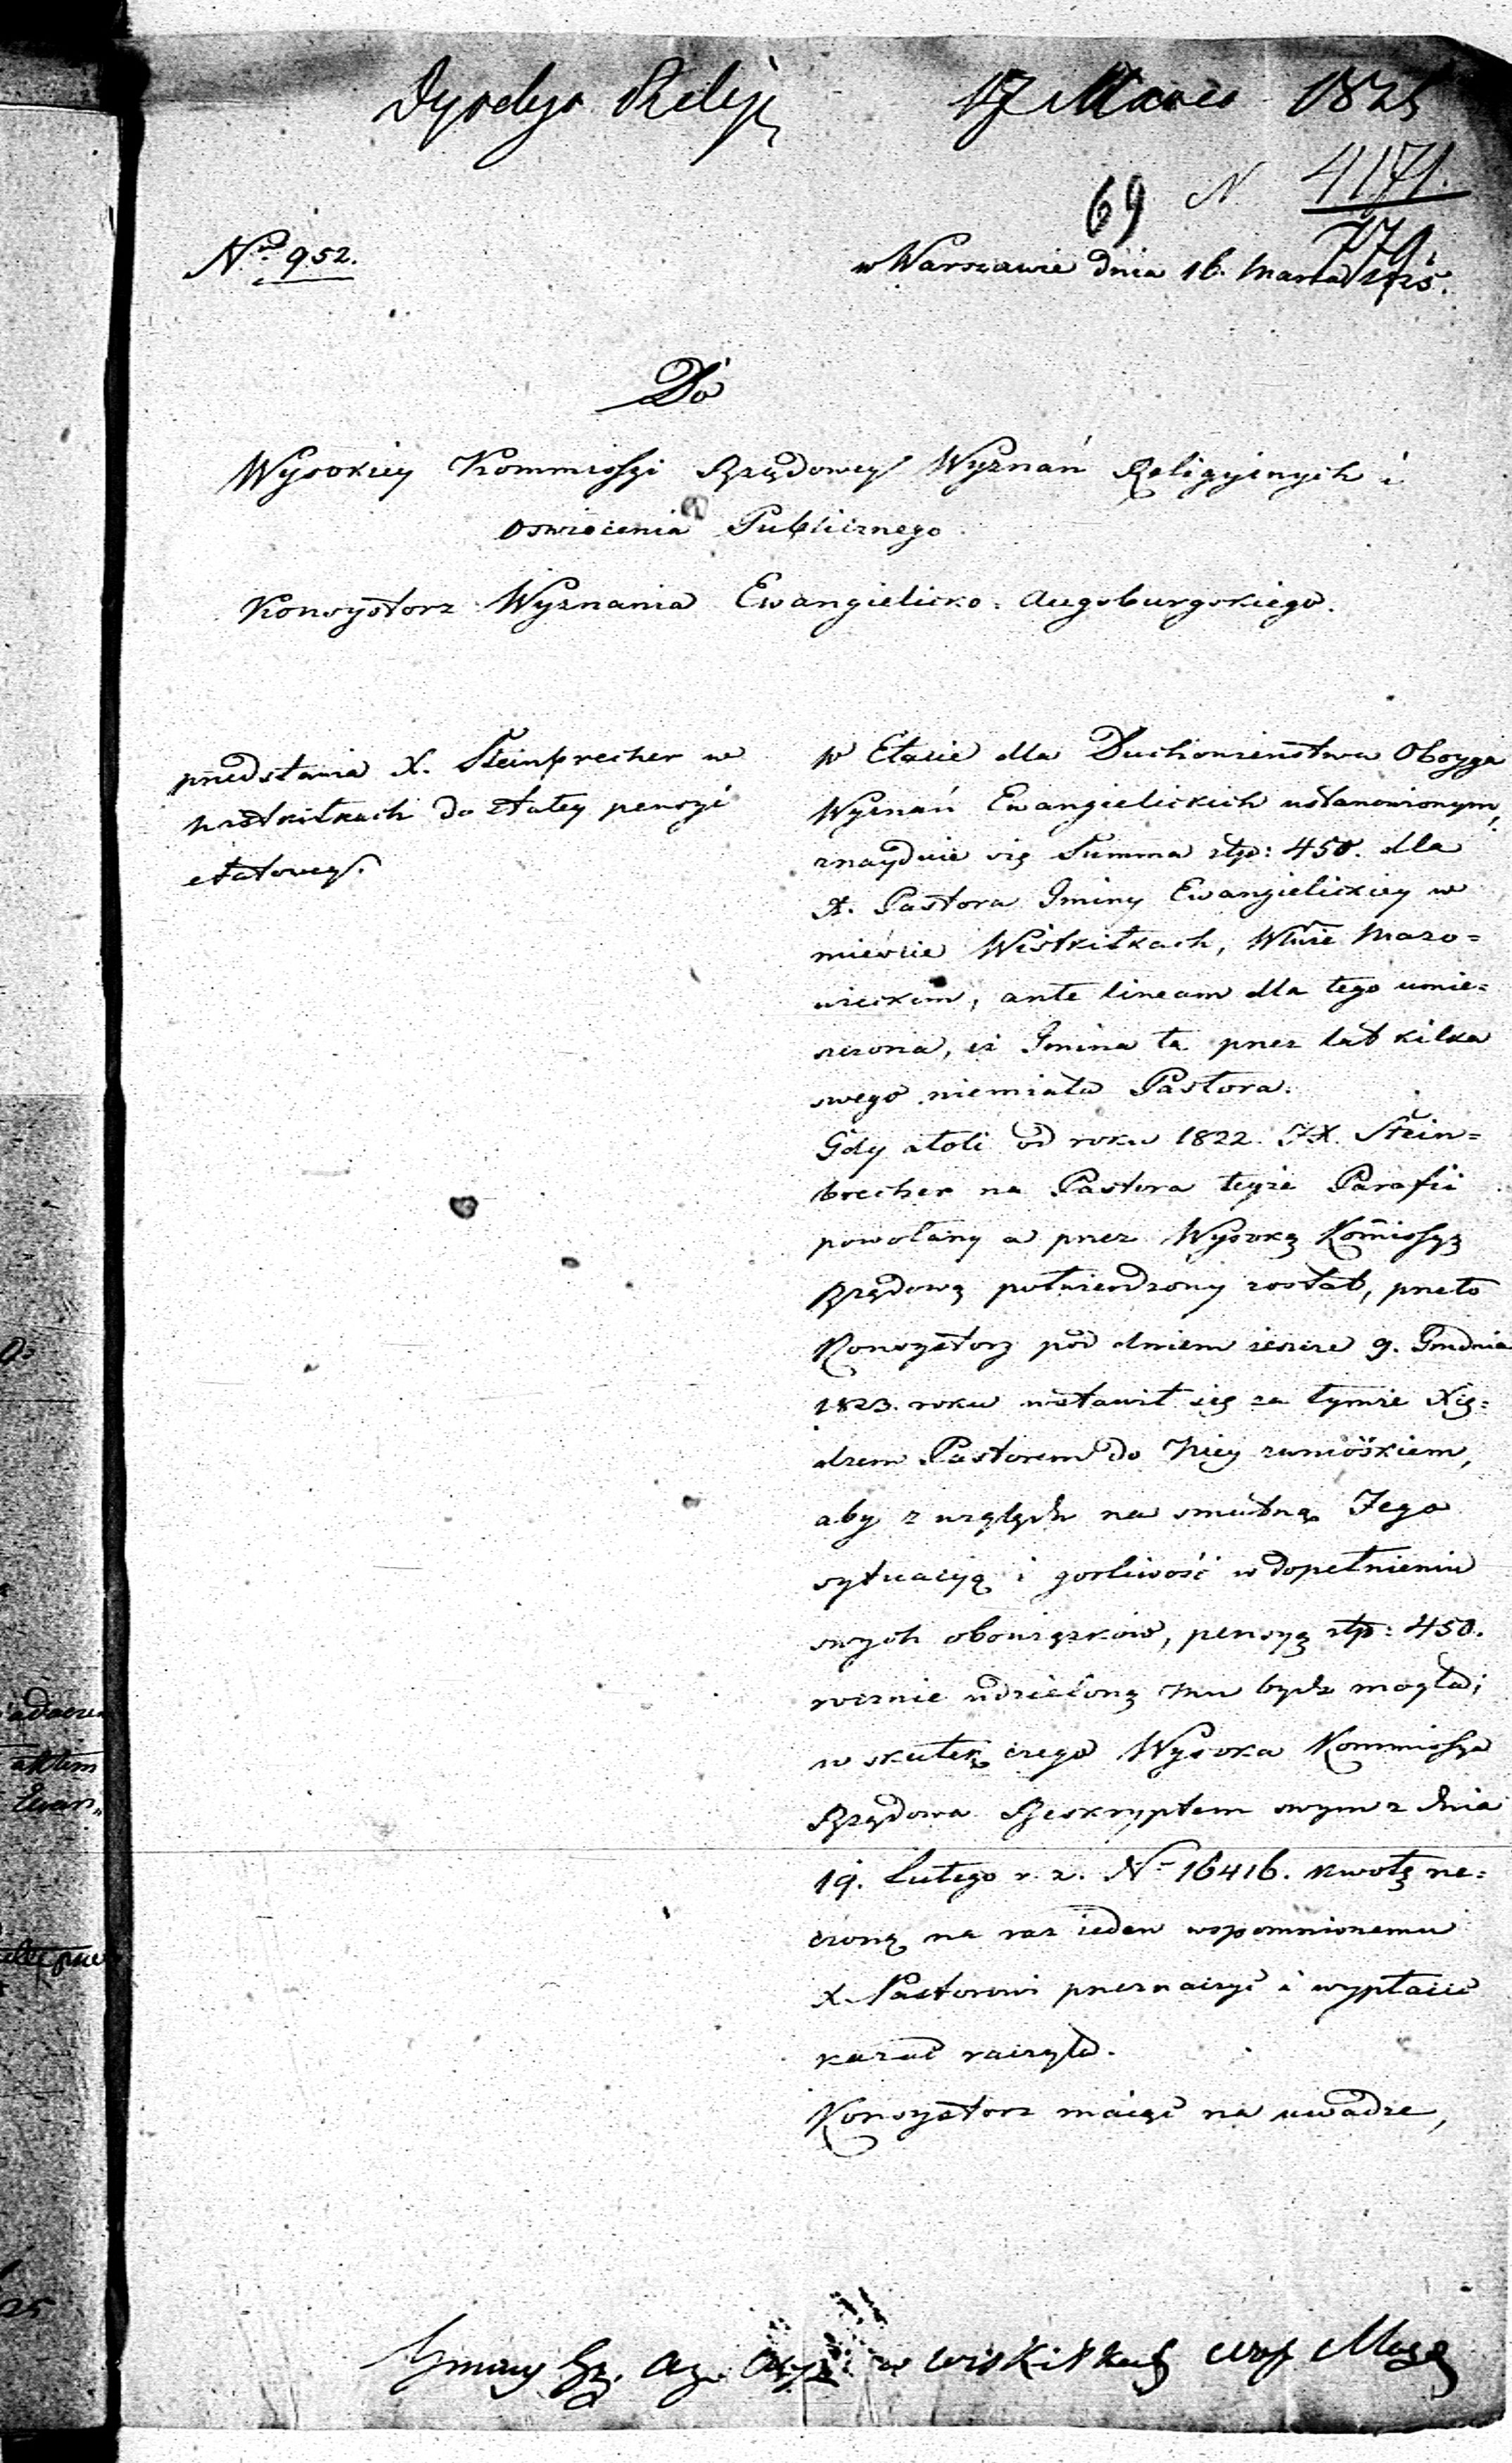 17 Marca 1825
69 N 4171.
779.
No 952.
w Warszawie dnia 16. Marca 1825.
Do
Wysokiey Kommissyi Rządowey Wyznań Religiynych i
Oswiecenia Publicznego
Konsystorz Wyznania Ewangielicko-Augsburgskiego.
przedstawia X. Steinbrecher w
Wistkitkach do stałey pensyi
etatowey.
W Etacie dla Duchowienstwa Oboyga
Wyznań Ewangielickich ustanowionym,
znayduie się Summa złp: 450. dla
X. Pastora Gminy Ewangielickiey w
mieście Wistkitkach, Wtwie Mazo=
wieckim, ante lineam dla tego umie=
szczona, iż Gmina ta przez lat kilka
swego niemiała Pastora.
Gdy atoli od roku 1822. JX. Stein=
brecher na Pastora teyże Parafii
powołany a przez Wysoką Komissyą
Rządową potwierdzony został, przeto
Konsystorz pod dniem ieszcze 9. Grudnia
1823. roku wstawił się za tymże Xię=
dzem Pastorem do Niey z wnioskiem,
aby z względu na smutną Jego
sytuacyą i gorliwość w dopełnieniu
swych obowiązków, pensyą złp: 450.
rocznie udzieloną mu bydź mogła;
w skutek czego Wysoka Kommissya
Rządowa Reskryptem swym z dnia
19. Lutego r. z. No 16416. kwotę rze=
czoną na raz ieden wspomnionemu
X. Pastorowi przeznaczyć i wypłacić
kazać raczyła.
Konsystorz maiąc na uwadze,
Gminy w Wiskitkach Woj Mazo